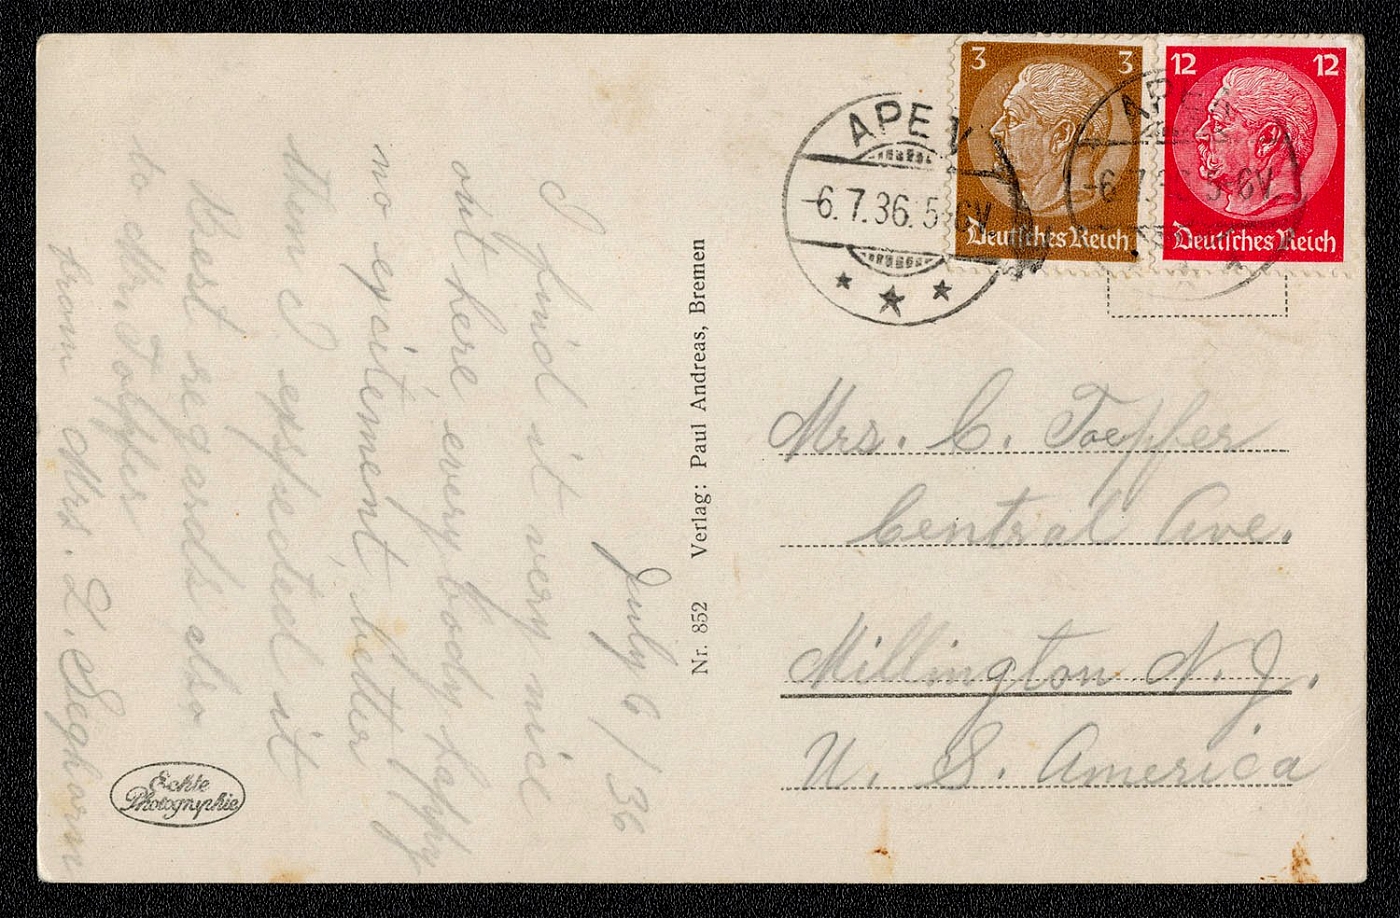 July 6/36
I find it very nice
out here, every body happy
no exsitement, better
then I expected it
Best regards also
to Mr. Toepfer
from Mrs. L. Seghorn
Echte
Photographie
Nr. 852 Verlag: Paul Andreas, Bremen
APEN
-6.7.36.5-6V
3 3
Deutsches Reich
APEN
-6.7.36.5-6V
12 12
Deutsches Reich
Mrs. C. Toepfer
Central Ave.
Millington N.J.
U. S. America